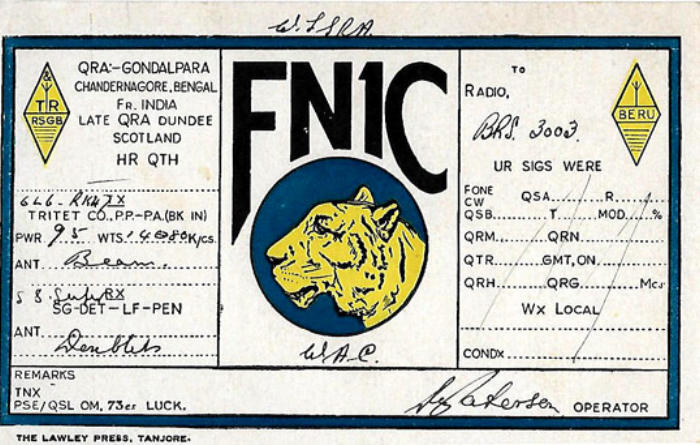 W.I.S.R.A.
& 
T R
RSGB
QRA:-GONDALPARA
CHANDERNAGORE, BENGAL
FR. INDIA
LATE QRA DUNDEE
SCOTLAND
HR QTH
6L6 - RK47 TX
TRITET CO. P.P.-PA.(BK IN)
PWR 95 WTS. 14 080 K/CS.
ANT. Beam.
RX
SG-DET-LF-PEN
ANT. Doublets
FN1C
W.A.C.
TO
RADIO,
BRS. 3003.
BERU
UR SIGS WERE
FONE
CW QSA R
QSB T MOD. %
QRM QRN
QTR GMT, ON
QRH QRG Mcs
Wx LOCAL
CONDx
REMARKS
TNX
PSE/QSL OM, 73es LUCK.
OPERATOR
THE LAWLEY PRESS, TANJORE.